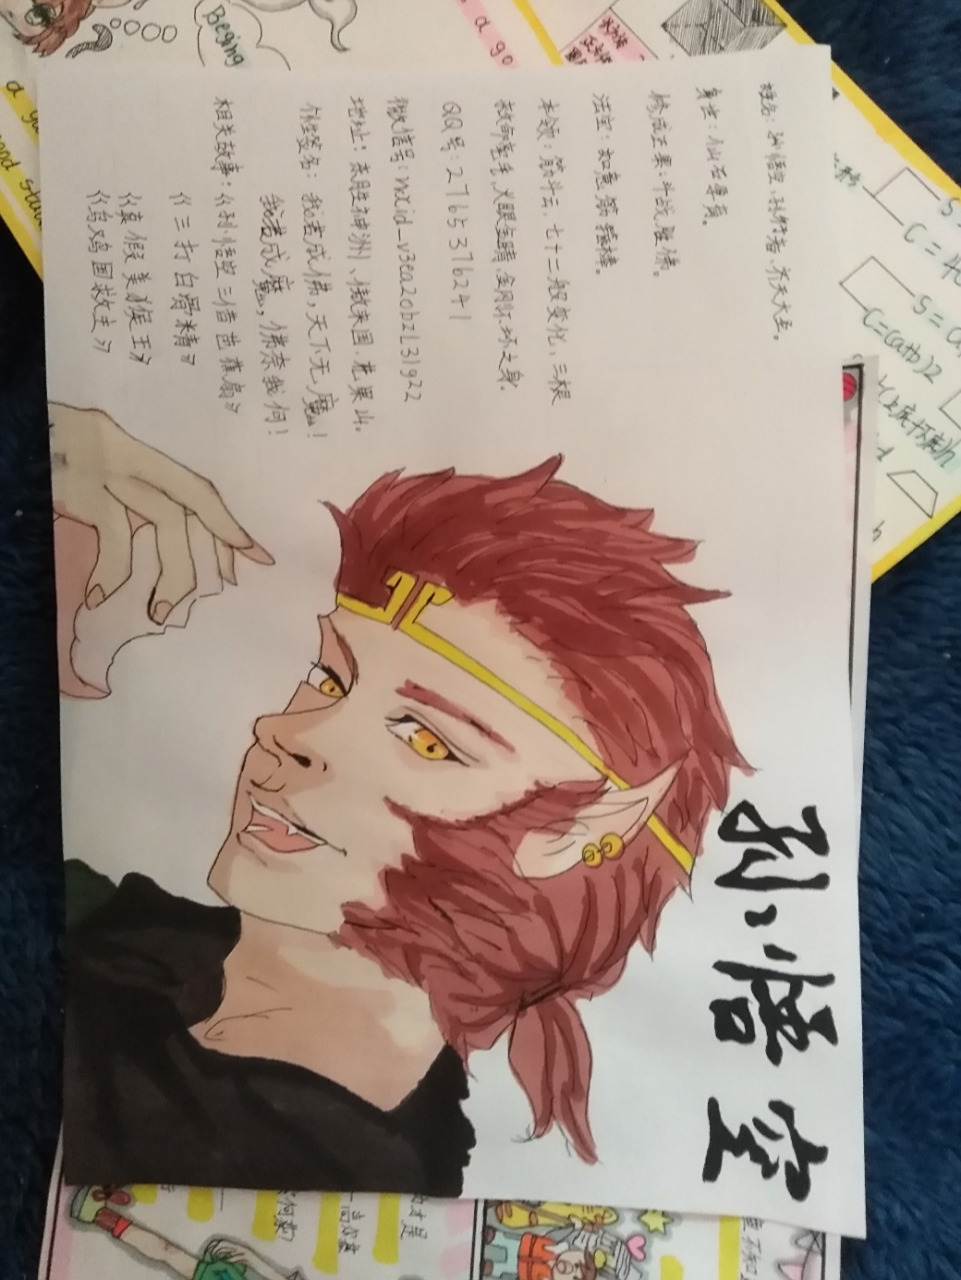 孙悟空
姓名：孙悟空、孙行者、齐天大圣。
身世：仙石孕育。
修成正果：斗战胜佛。
法宝：如意筋箍棒。
本领：筋斗云，七十二般变化，三根
救命毫毛，火眼金睛，金刚不坏之身。
QQ号：2765376241
微信号：wxid_v3ea20bzl31g22
地址：东胜神洲、傲来国、花果山。
个性签名：我若成佛，天下无魔！
我若成魔，佛奈我何！
相关故事：《孙悟空三借芭蕉扇》
《三打白骨精》
《真假美猴王》
《乌鸡国救主》
Beging
a go
S
C=40
S=
C=(a+b)2
(上底+下底)h